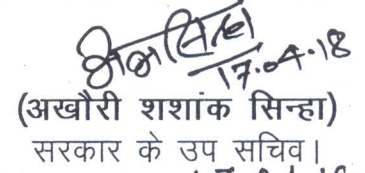 17.04.18
(अखौरी शशांक सिन्हा)
सरकार के उप सचिव।